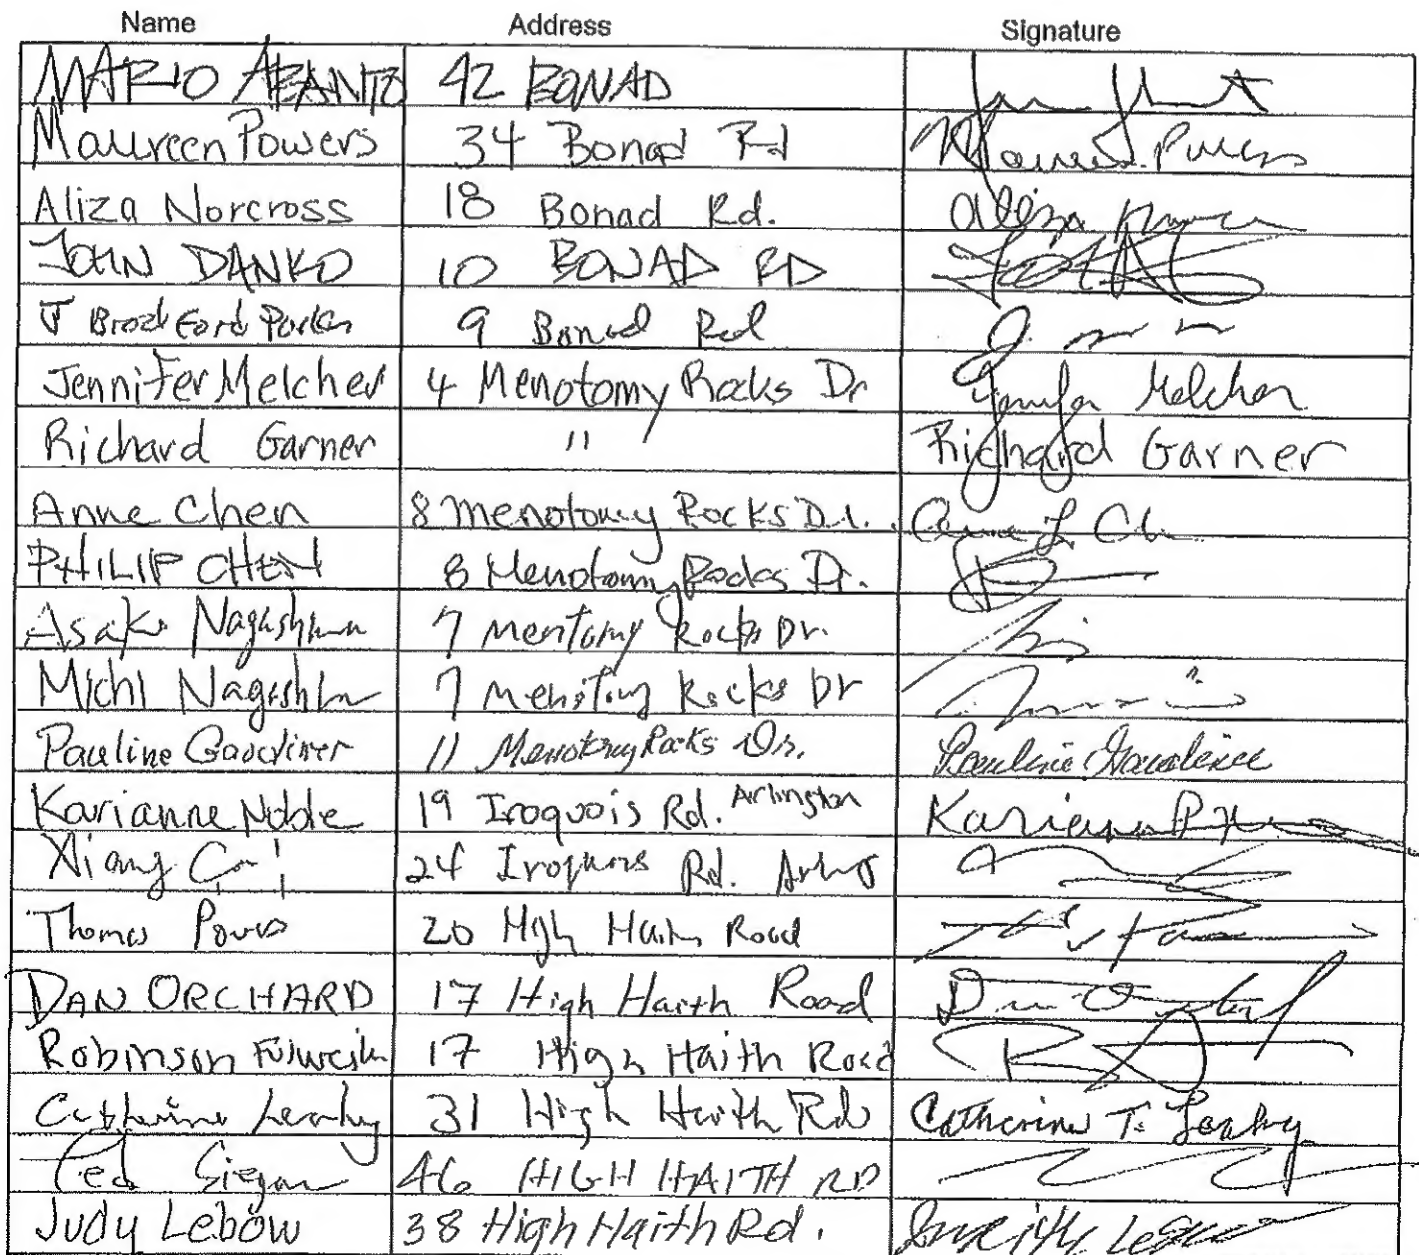 Name Address Signature
MARIO ABANTO 42 BONAD
Maureen Powers 34 Bonad Rd
Aliza Norcross 18 Bonad Rd. Aliza
JOHN DANKO 10 BONAD RD
J Bradford Parker 9 Bonad Rd
Jennifer Melcher 4 Menotomy Rocks Dr Jennifer Melcher
Richard Garner " Richard Garner
Anne Chen 8 Menotomy Rocks Dr. Anne L. Ch
PHILIP CHEN 8 Menotomy Rocks Dr.
Asako 7 Rocks Dr.
Michi 7 Rocks Dr
Pauline 11 Menotomy Rocks Dr. Pauline
Karianne Noble 19 Iroquois Rd. Arlington
Xiang Cai 24 Iroquois Rd.
Thomas Powers 20 High Haith Road
DAN ORCHARD 17 High Haith Road Dan Orchard
Robinson 17 High Haith Road
Catherine Leahy 31 High Haith Rd Catherine T. Leahy
Ted 46 HIGH HAITH RD
Judy Lebow 38 High Haith Rd.